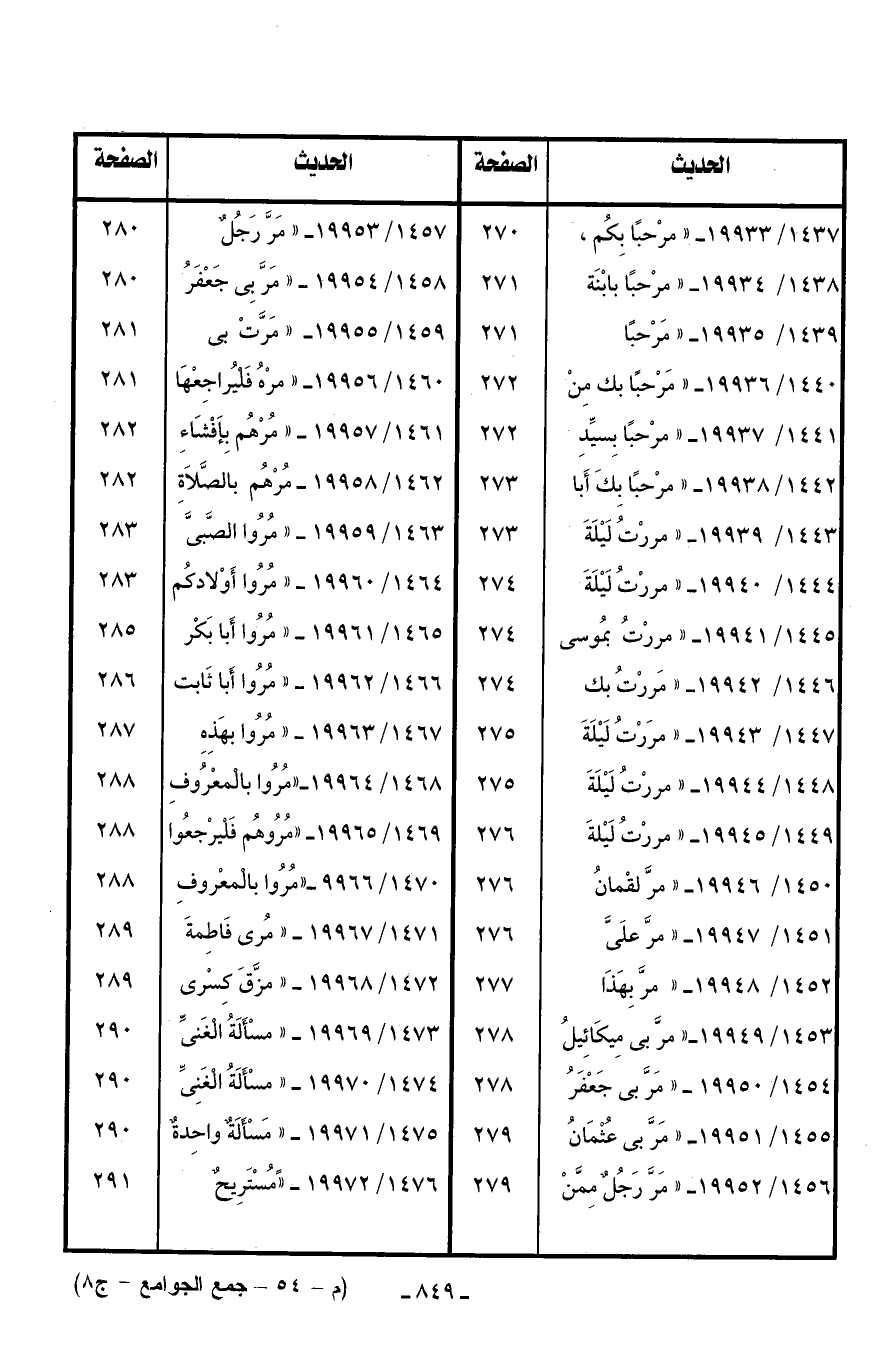 الحديث الصفحة الحديث الصفحة
١٤٣٧/ ١٩٩٣٣ـ « مرْحبًا بِكُم ، ٢٧٠ ١٤٥٧/ ١٩٩٥٣ـ « مَرَّ رَجُلٌ ٢٨٠
١٤٣٨/ ١٩٩٣٤ـ « مرْحبًا بابْنَة ٢٧١ ١٤٥٨/ ١٩٩٥٤ ـ « مَرَّ بِى جَعْفَرُ ٢٨٠
١٤٣٩/ ١٩٩٣٥ـ « مَرْحبًا ٢٧١ ١٤٥٩/ ١٩٩٥٥ـ « مَرَّتْ بى ٢٨١
١٤٤٠/ ١٩٩٣٦ـ « مَرْحبًا بك مِنْ ٢٧٢ ١٤٦٠/ ١٩٩٥٦ـ « مرْهُ فَلْيُراجِعْهَا ٢٨١
١٤٤١/ ١٩٩٣٧ـ « مرْحبًا بسيِّدِ ٢٧٢ ١٤٦١/ ١٩٩٥٧ ـ « مُرْهُم بِإَفْشَاءِ ٢٨٢
١٤٤٢/ ١٩٩٣٨ـ « مرْحبًا بِكَ أبا ٢٧٣ ١٤٦٢/ ١٩٩٥٨ ـ مُرْهُم بالصَّلاَةِ ٢٨٢
١٤٤٣/ ١٩٩٣٩ـ « مررْتُ لَيْلَةَ ٢٧٣ ١٤٦٣/ ١٩٩٥٩ ـ « مُرُوا الصَّبىَّ ٢٨٣
١٤٤٤/ ١٩٩٤٠ـ « مررْتُ لَيْلَةَ ٢٧٤ ١٤٦٤/ ١٩٩٦٠ ـ « مُرُوا أَوْلادكُم ٢٨٣
١٤٤٥/ ١٩٩٤١ـ « مررْتُ بمُوسى ٢٧٤ ١٤٦٥/ ١٩٩٦١ ـ « مُرُوا أبا بَكْر ٢٨٥
١٤٤٦/ ١٩٩٤٢ـ « مَررْتُ بك ٢٧٤ ١٤٦٦/ ١٩٩٦٢ ـ « مُرُوا أبا ثَابت ٢٨٦
١٤٤٧/ ١٩٩٤٣ـ « مرَرْتُ لَيْلَةَ ٢٧٥ ١٤٦٧/ ١٩٩٦٣ ـ « مُرُوا بهَذِهِ ٢٨٧
١٤٤٨/ ١٩٩٤٤ـ « مررْتُ لَيْلَةَ ٢٧٥ ١٤٦٨/ ١٩٩٦٤ـ«مُرُوا بالْمعْرُوفِ ٢٨٨
١٤٤٩/ ١٩٩٤٥ـ « مررْتُ لَيْلةَ ٢٧٦ ١٤٦٩/ ١٩٩٦٥ـ «مُرُوهُم فَلْيرْجعُوا ٢٨٨
١٤٥٠/ ١٩٩٤٦ـ « مرَّ لقْمانُ ٢٧٦ ١٤٧٠/ ٩٩٦٦ ـ«مُرُوا بالْمعْروفِ ٢٨٨
١٤٥١/ ١٩٩٤٧ـ « مرَّ علَىَّ ٢٧٦ ١٤٧١/ ١٩٩٦٧ ـ « مُرى فَاطِمةَ ٢٨٩
١٤٥٢/ ١٩٩٤٨ـ « مرَّ بهَذَا ٢٧٧ ١٤٧٢/ ١٩٩٦٨ ـ « مزَّقَ كِسْرى ٢٨٩
١٤٥٣/ ١٩٩٤٩ـ« مرَّ بى مِيكَائِيلُ ٢٧٨ ١٤٧٣/ ١٩٩٦٩ ـ « مسْأَلَةُ الْغَنىِّ ٢٩٠
١٤٥٤/ ١٩٩٥٠ـ « مَرَّ بِى جَعْفَرُ ٢٧٨ ١٤٧٤/ ١٩٩٧٠ ـ « مسْأَلَةُ الْغَنىِّ ٢٩٠
١٤٥٥/ ١٩٩٥١ـ « مَرَّ بى عُثْمَانُ ٢٧٩ ١٤٧٥/ ١٩٩٧١ ـ « مَسْأَلَةٌ واحِدةٌ ٢٩٠
١٤٥٦/ ١٩٩٥٢ـ « مَرَّ رَجُلٌ مِمَّنْ ٢٧٩ ١٤٧٦/ ١٩٩٧٢ ـ «مُسْتَرِيحٌ ٢٩١
ـ ٨٤٩ ـ (م - ٥٤ - جمع الجوامع - ج٨)